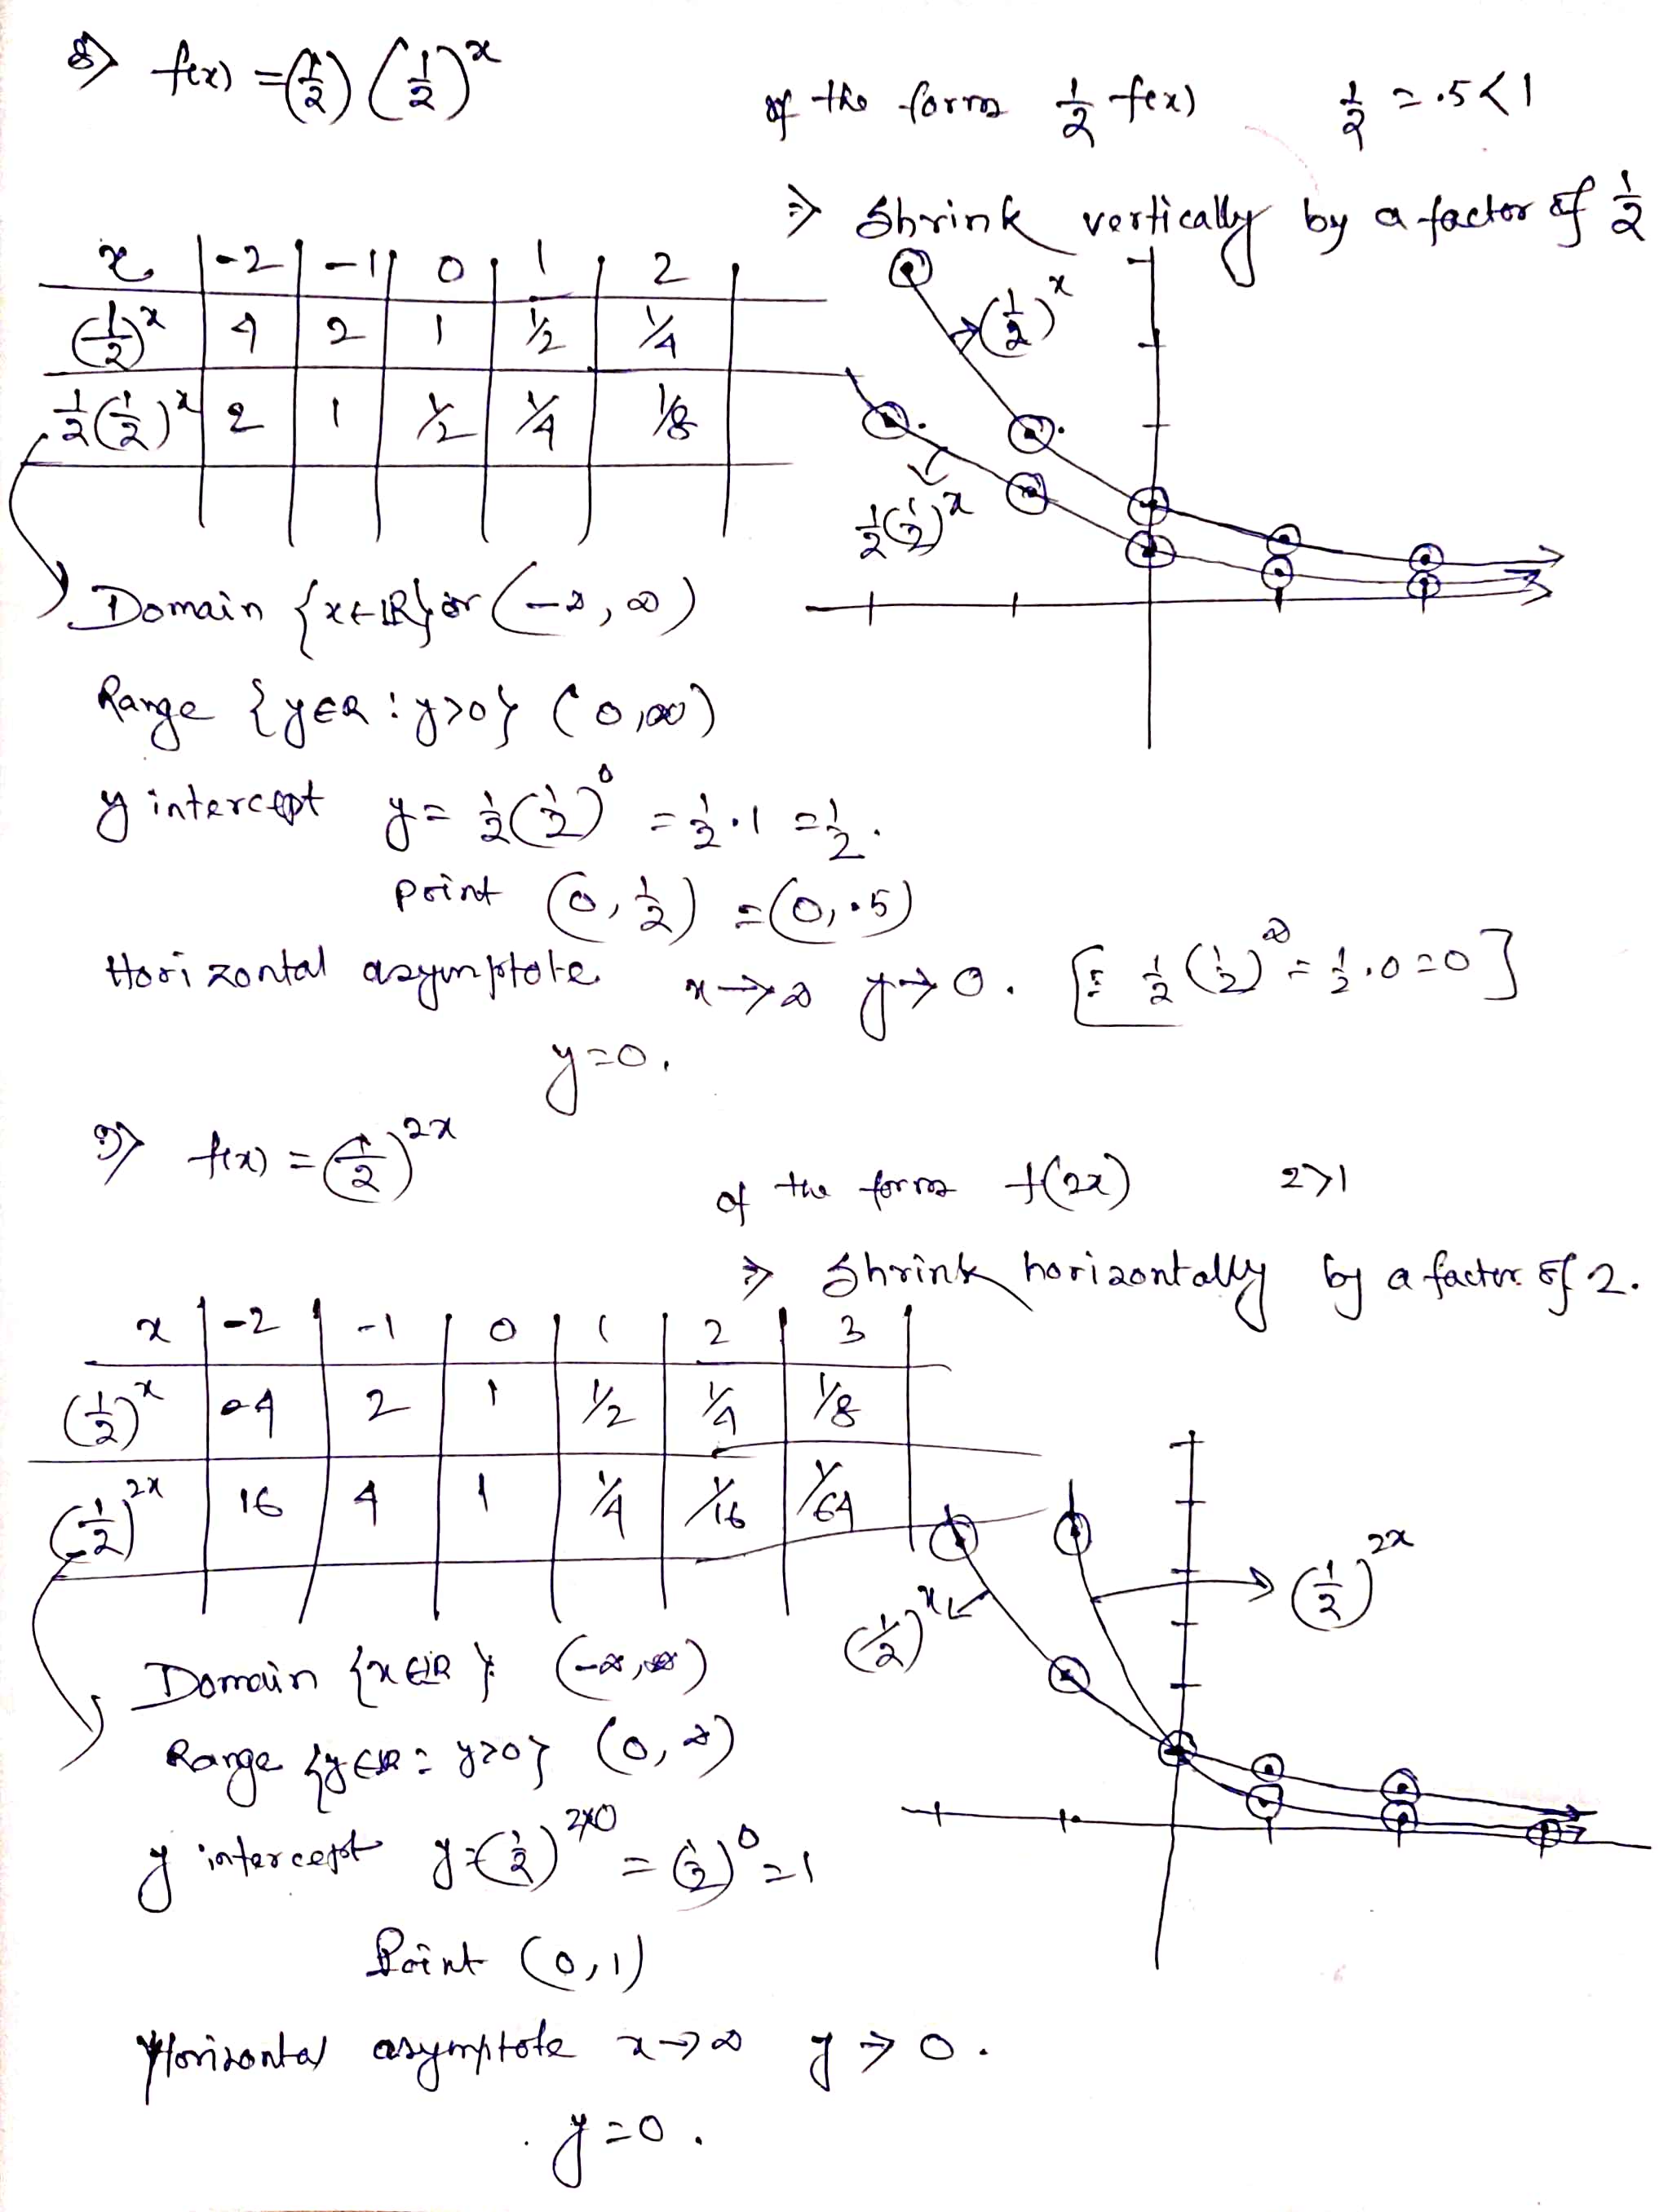 8) f(x) = (1/2) (1/2)^x
of the form 1/2 f(x) 1/2 = .5 < 1
⇒ Shrink vertically by a factor of 1/2
x | -2 | -1 | 0 | 1 | 2
(1/2)^x | 4 | 2 | 1 | 1/2 | 1/4
1/2(1/2)^x | 2 | 1 | 1/2 | 1/4 | 1/8
(1/2)^x
1/2(1/2)^x
Domain {x∈ℝ} or (-∞, ∞)
Range {y∈R : y>0} (0, ∞)
y intercept y = 1/2(1/2)^0 = 1/2 · 1 = 1/2.
point (0, 1/2) = (0, .5)
Horizontal asymptote x→∞ y→0. [∵ 1/2 (1/2)^∞ = 1/2 · 0 = 0]
y=0.
9) f(x) = (1/2)^2x
of the form f(2x) 2>1
⇒ Shrink horizontally by a factor of 2.
x | -2 | -1 | 0 | 1 | 2 | 3
(1/2)^x | 4 | 2 | 1 | 1/2 | 1/4 | 1/8
(1/2)^2x | 16 | 4 | 1 | 1/4 | 1/16 | 1/64
(1/2)^2x
(1/2)^x
Domain {x∈ℝ} (-∞, ∞)
Range {y∈ℝ : y>0} (0, ∞)
y intercept y = (1/2)^2×0 = (1/2)^0 = 1
Point (0, 1)
Horizontal asymptote x→∞ y→0.
y=0.